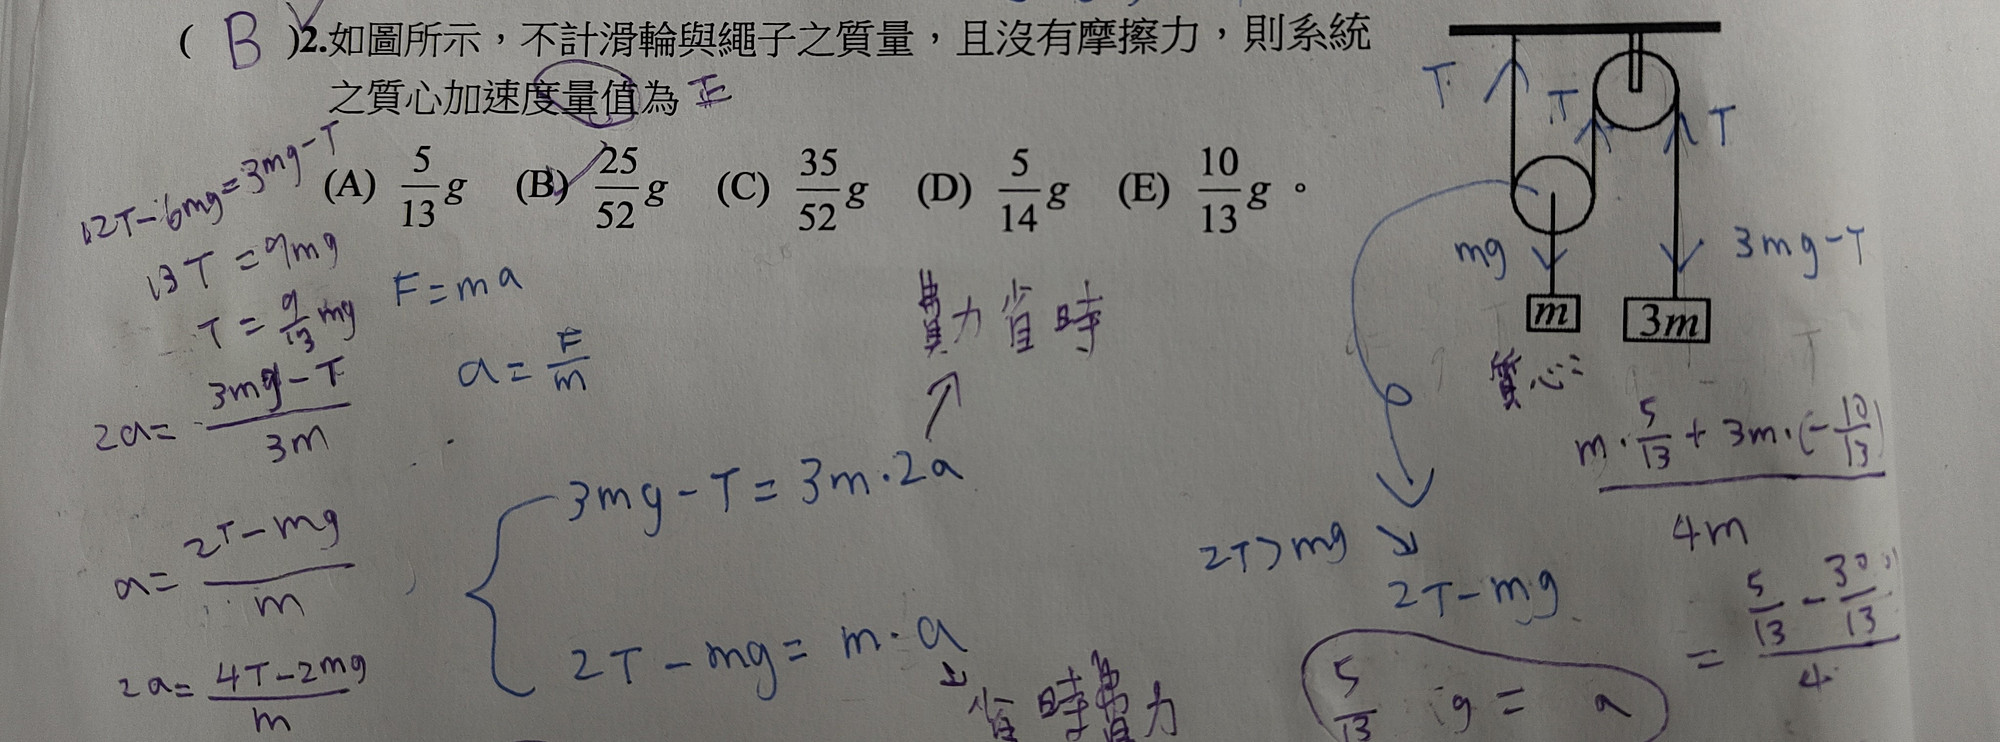 ( B )2.如圖所示，不計滑輪與繩子之質量，且沒有摩擦力，則系統
之質心加速度量值為 正
(A) 5/13 g (B) 25/52 g (C) 35/52 g (D) 5/14 g (E) 10/13 g。
12T-6mg=3mg-T
13T=9mg
T=9/13 mg
2a=(3mg-T)/3m
a=(2T-mg)/m
2a=(4T-2mg)/m
F=ma
a=F/m
費力省時
3mg-T=3m·2a
2T-mg=m·a
省時費力
T T T
mg 3mg-T
m 3m
質心:
(m·5/13+3m·(-10/13))/4m
=(5/13-30/13)/4
2T>mg
2T-mg
5/13 g = a